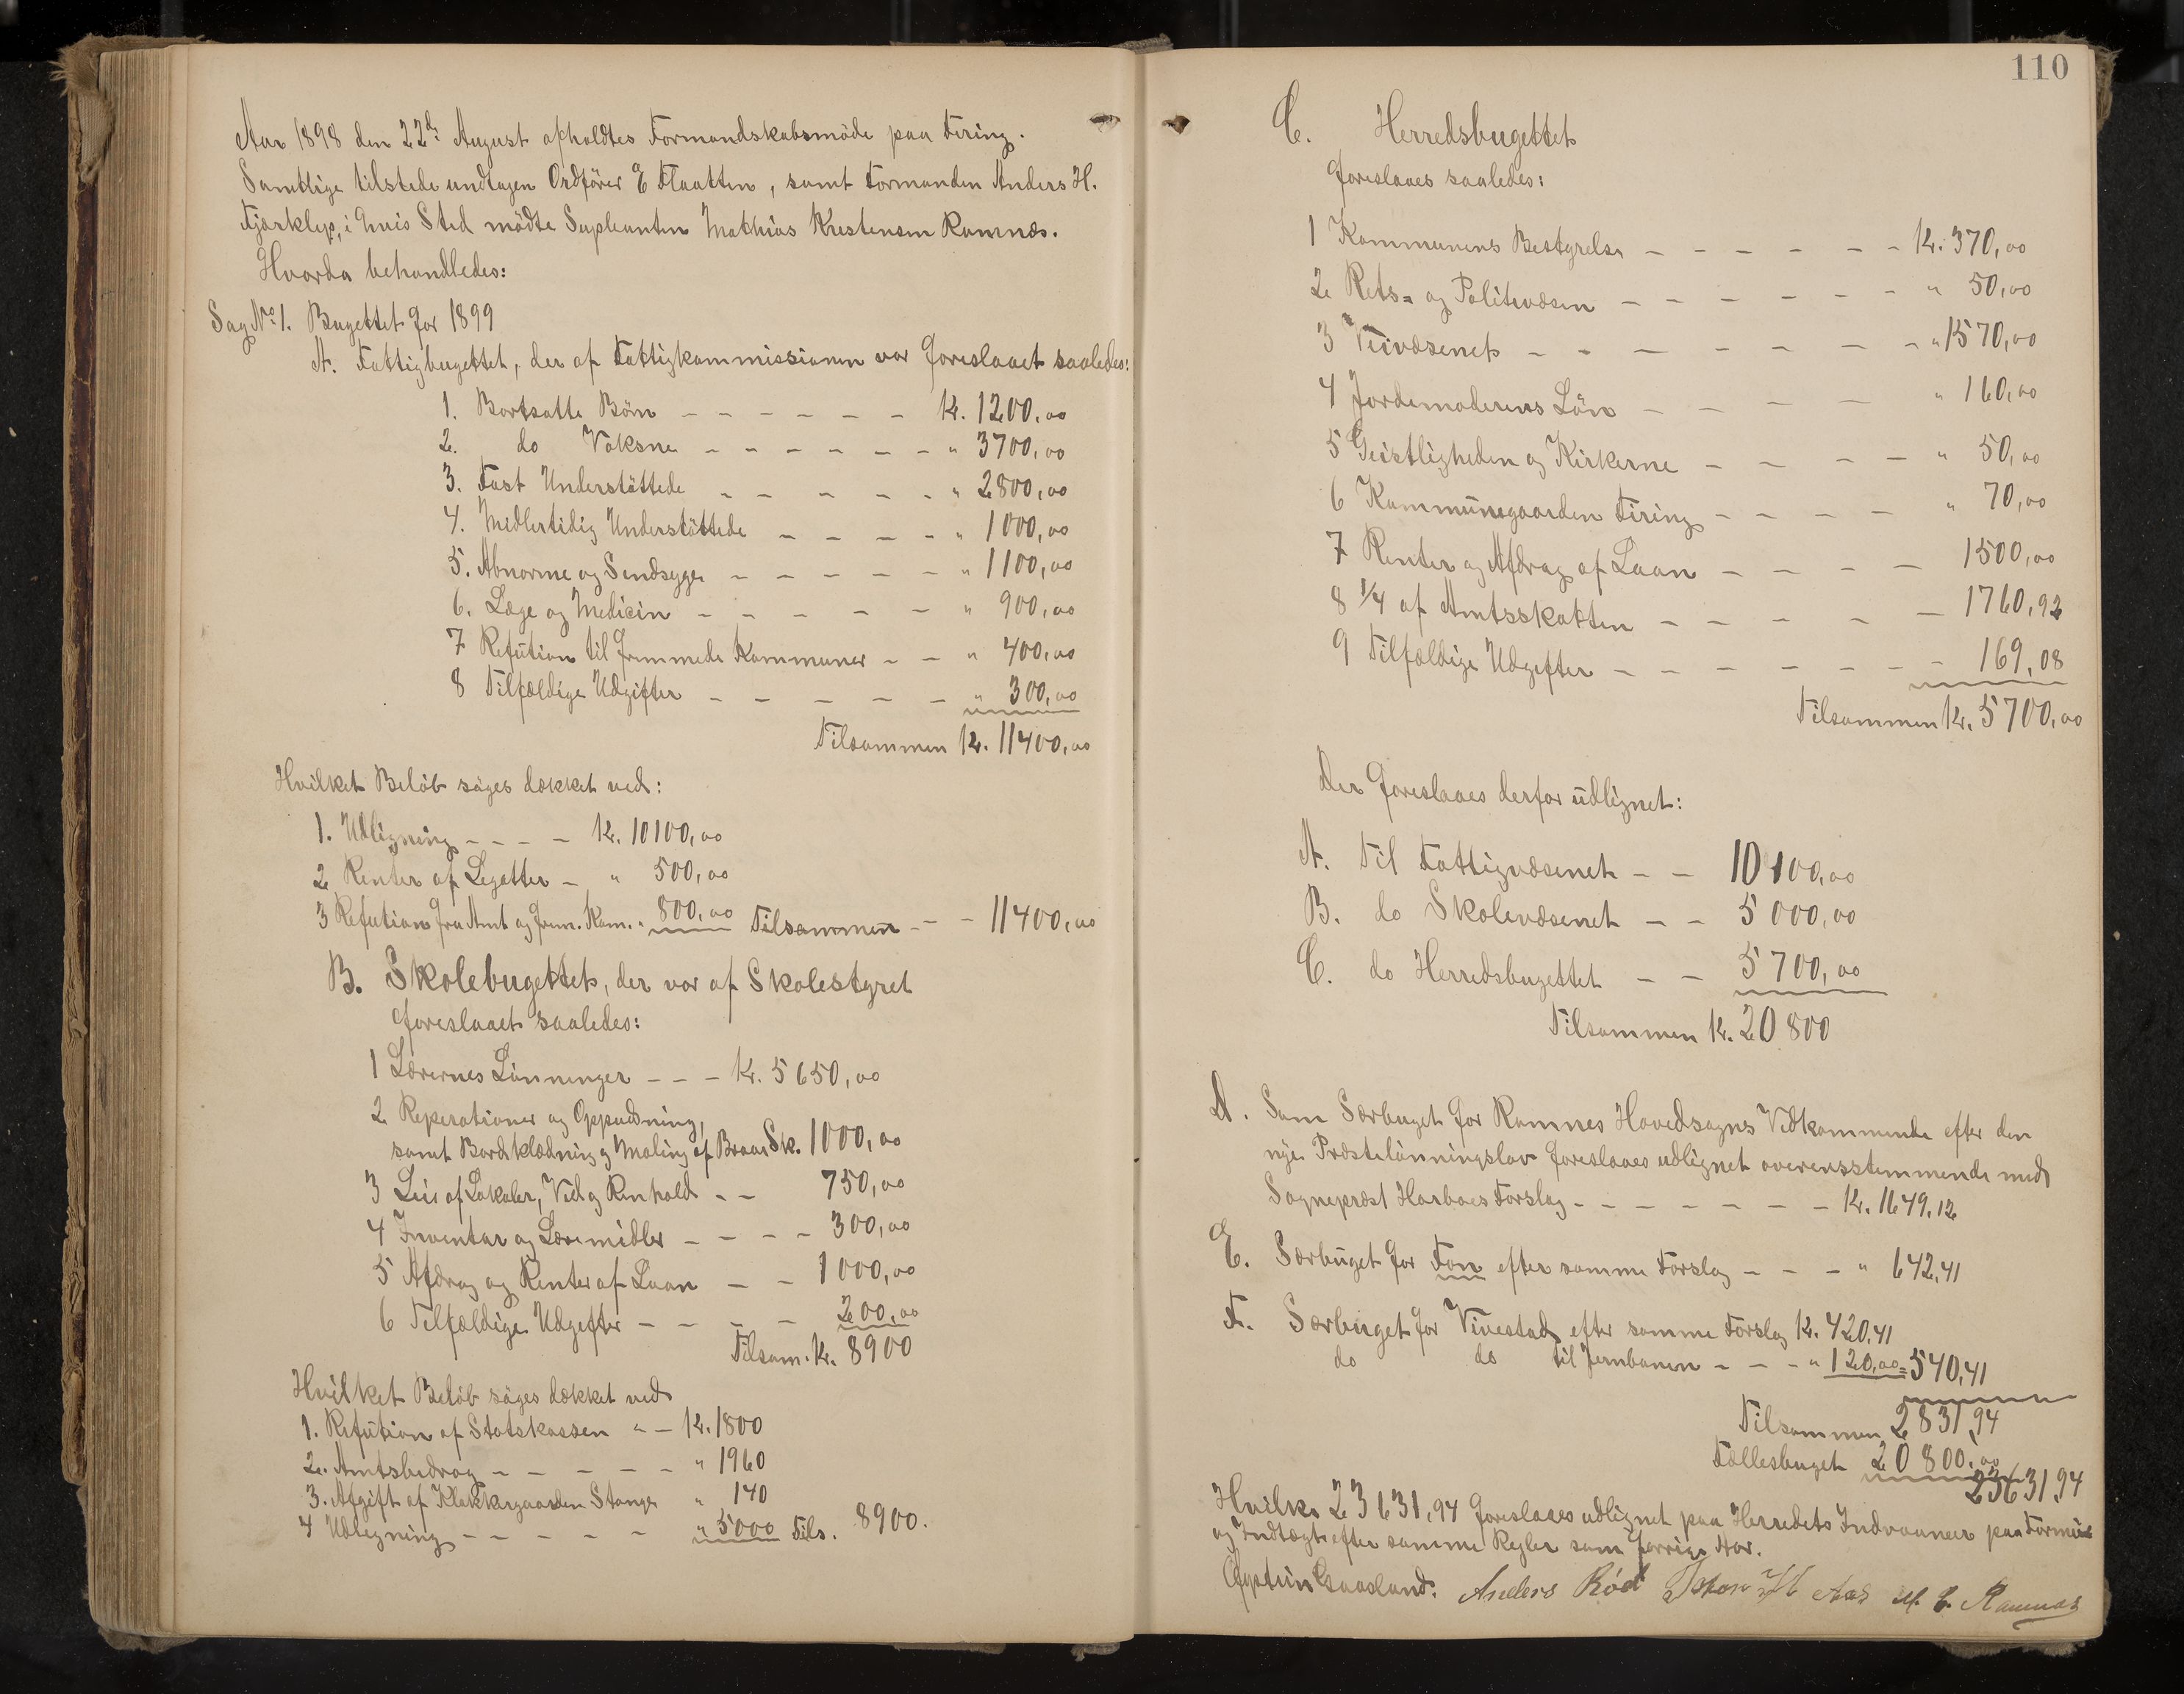 Aar 1898 den 22de August afholdtes Formandskabsmöde paa Firing.
Samtlige tilstede undtagen Ordförer E Flaatten, samt Formanden Anders H.
Fjærklep, i hvis Sted mödte Supleanten Mathias Kristensen Ramnæs.
Hvorda behandledes:
Sag No 1. Bugettet for 1899
A. Fattigbugettet, der af Fattigkommissionen var foreslaaet saaledes:
1. Bortsatte Börn – – – – – – Kr. 1200,00
2. do Voksne – – – – – – " 3700,00
3. Fast Understöttede – – – – – " 2800,00
4. Midlertidig Understöttede – – – – " 1000,00
5. Abnorme og Sindsyge – – – – – " 1100,00
6. Læge og Medicin – – – – – " 900,00
7 Refution til fremmede Kommuner – – " 400,00
8 Tilfældige Udgifter – – – – – " 300,00
Tilsammen Kr. 11400,00
Hvilket Belöb söges dækket ved:
1. Udligning – – – – Kr. 10100,00
2 Renter af Legatter – " 500,00
3 Refution fra Amt og frem. Kom. " 800,00 Tilsammen – – 11400,00
B. Skolebugettet, der var af Skolestyret
foreslaaet saaledes:
1 Lærernes Lönninger – – – Kr. 5650,00
2 Reperationer og Oppudsning,
samt Bordklædning og Maling af Braar Sk. 1000,00
3 Leie af Lokaler, Ved og Renhold – – 750,00
4 Inventar og Læremidler – – – – 300,00
5 Afdrag og Renter af Laan – – 1000,00
6 Tilfældige Udgifter – – – – 200,00
Tilsam. Kr. 8900
Hvilket Belöb söges dækket ved
1. Refution af Statskassen " – Kr. 1800
2. Amtsbidrag – – – – – " 1960
3. Afgift af Klokkergaarden Stange " 140
4 Udligning – – – – – " 5000 Tils. 8900.
110
C. Herredsbugettet
foreslaaes saaledes:
1 Kommunens Bestyrelse – – – – – – Kr. 370,00
2 Rets= og Politivæsen – – – – – – " 50,00
3 Veivæsenet – – – – – – – " 1570,00
4 Jordemoderens Lön – – – – " 160,00
5 Geistligheden og Kirkerne – – – – " 50,00
6 Kommunegaarden Firing – – – – " 70,00
7 Renter og Afdrag af Laan – – – – 1500,00
8 1/4 af Amtsskatten – – – – – 1760,92
9 Tilfældige Udgifter – – – – – – – 169,08
Tilsammen Kr. 5700,00
Der foreslaaes derfor udlignet:
A. Til Fattigvæsenet – – 10100,00
B. do Skolevæsenet – – 5000,00
C. do Herredsbugettet – – 5700,00
Tilsammen Kr. 20800
D. Som Særbuget for Ramnes Hovedsogns Vedkommende efter den
nye Præstelönningslov foreslaaes udlignet overensstemmende med
Sogneprest Harboes Forslag – – – – – – – Kr. 1649,12
E. Særbuget for Fon efter samme Forslag – – – " 642,41
F. Særbuget for Vivestad efter samme Forslag Kr. 420,41
do do til Jernbanen – – – " 120,00 = 540,41
Tilsammen 2831,94
Fællesbuget 20800,00
23631,94
Hvilke 23631,94 foreslaaes udlignet paa Herredets Indvaanere paa Formue
og Indtægt efter samme Regler som forrige Aar.
Öystein Graasland. Anders Röd Aas M. C. Ramnæs